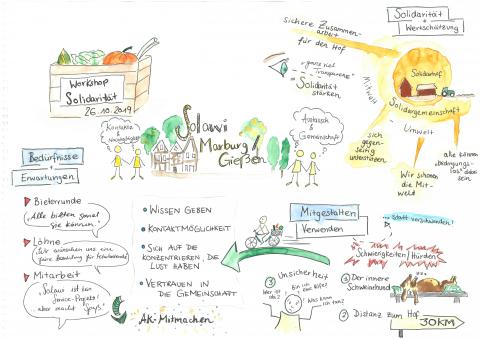 Workshop
Solidarität
26.10.2019
sichere Zusammen-
arbeit
für den Hof
"ganz viel
Transparenz"
Solidarität
stärken
Solidarität
+
Wertschätzung
Solidarhof
Solidargemeinschaft
Mitwelt
Umwelt
sich
gegen-
seitig
unterstützen
Wir schonen
die Mit-
welt
alle können
"bedingungs-
los" dabei
sein
Kontakte
&
Austausch
&
Gemeinschaft
Solawi
Marburg
Gießen
Bedürfnisse
+
Erwartungen
Bieterrunde
"Alle bieten soviel
Sie können."
Löhne
"Wir wünschen uns eine
faire Bezahlung für
Mitarbeit
"Solawi ist kein
Service-Projekt!
aber macht Spaß."
• Wissen geben
• Kontaktmöglichkeit
• Sich auf die
konzentrieren, die
Lust haben
• Vertrauen in
die Gemeinschaft
AK-Mitmachen
Mitgestalten
Verwenden
... statt verschwenden!
Schwierigkeiten/Hürden
③ Unsicherheit
Wer ist
da?
Bin ich
eine Hilfe?
Was kann
ich tun?
① Der innere
Schweinehund
② Distanz zum Hof
30KM